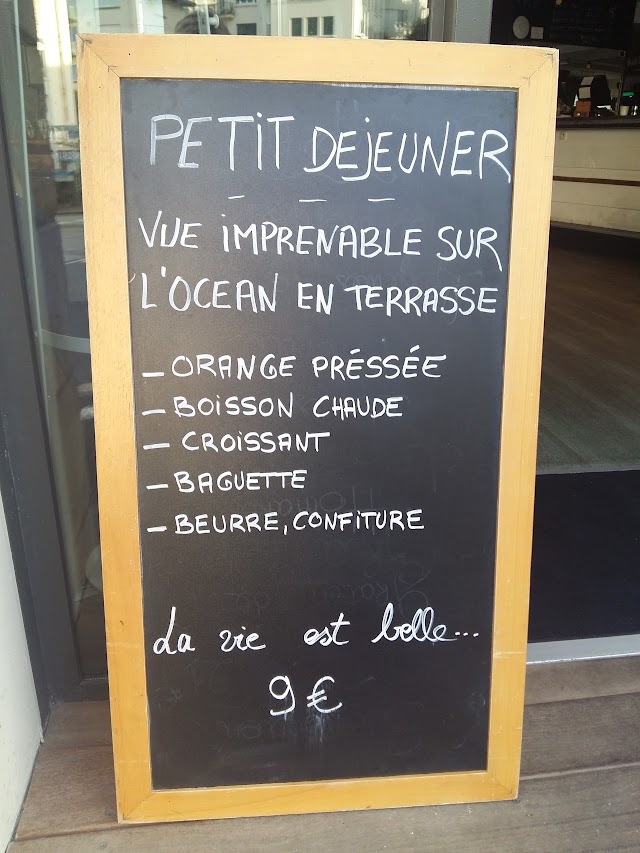 PETIT DEJEUNER
VUE IMPRENABLE SUR
L'OCEAN EN TERRASSE
- ORANGE PRÉSSÉE
- BOISSON CHAUDE
- CROISSANT
- BAGUETTE
- BEURRE, CONFITURE
La vie est belle...
9 €